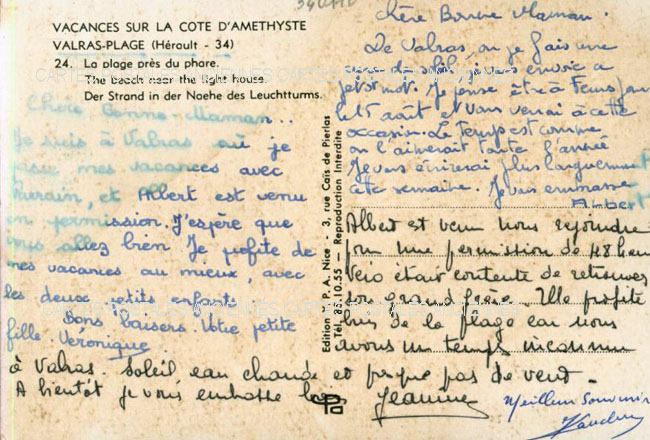 VACANCES SUR LA COTE D'AMETHYSTE
VALRAS-PLAGE (Hérault - 34)
24. La plage près du phare.
The beach near the light house.
Der Strand in der Naehe des Leuchtturms.
Chère Bonne-Maman..
Je suis à Valras où je
passe mes vacances avec
et Albert est venu
en permission. J'espère que
vous allez bien. Je profite de
mes vacances au mieux, avec
les deux petits enfants
bons baisers. Votre petite
fille. Véronique
Edition P. A. Nice - 3, rue Caïs de Pierlas
Tél. 85.10.55 - Reproduction Interdite
Chère Bonne Maman.
De Valras, où je fais une
je vous envoie a
petit mot. Je pense être à pour
le 15 août et vous verrai à cette
occasion. Le temps est comme
on l'aimerait toute l'année
Je vous écrirai plus longuement
cette semaine. Je vous embrasse
Albert
Albert est venu nous rejoindre
pour une permission de 48 heures
était contente de retrouver
son grand frère. Elle profite
bien de la plage car nous
avons un temps inconnu
à Valras. Soleil eau chaude et presque pas de vent.
A bientôt je vous embrasse
Jeannine
Meilleur souvenir